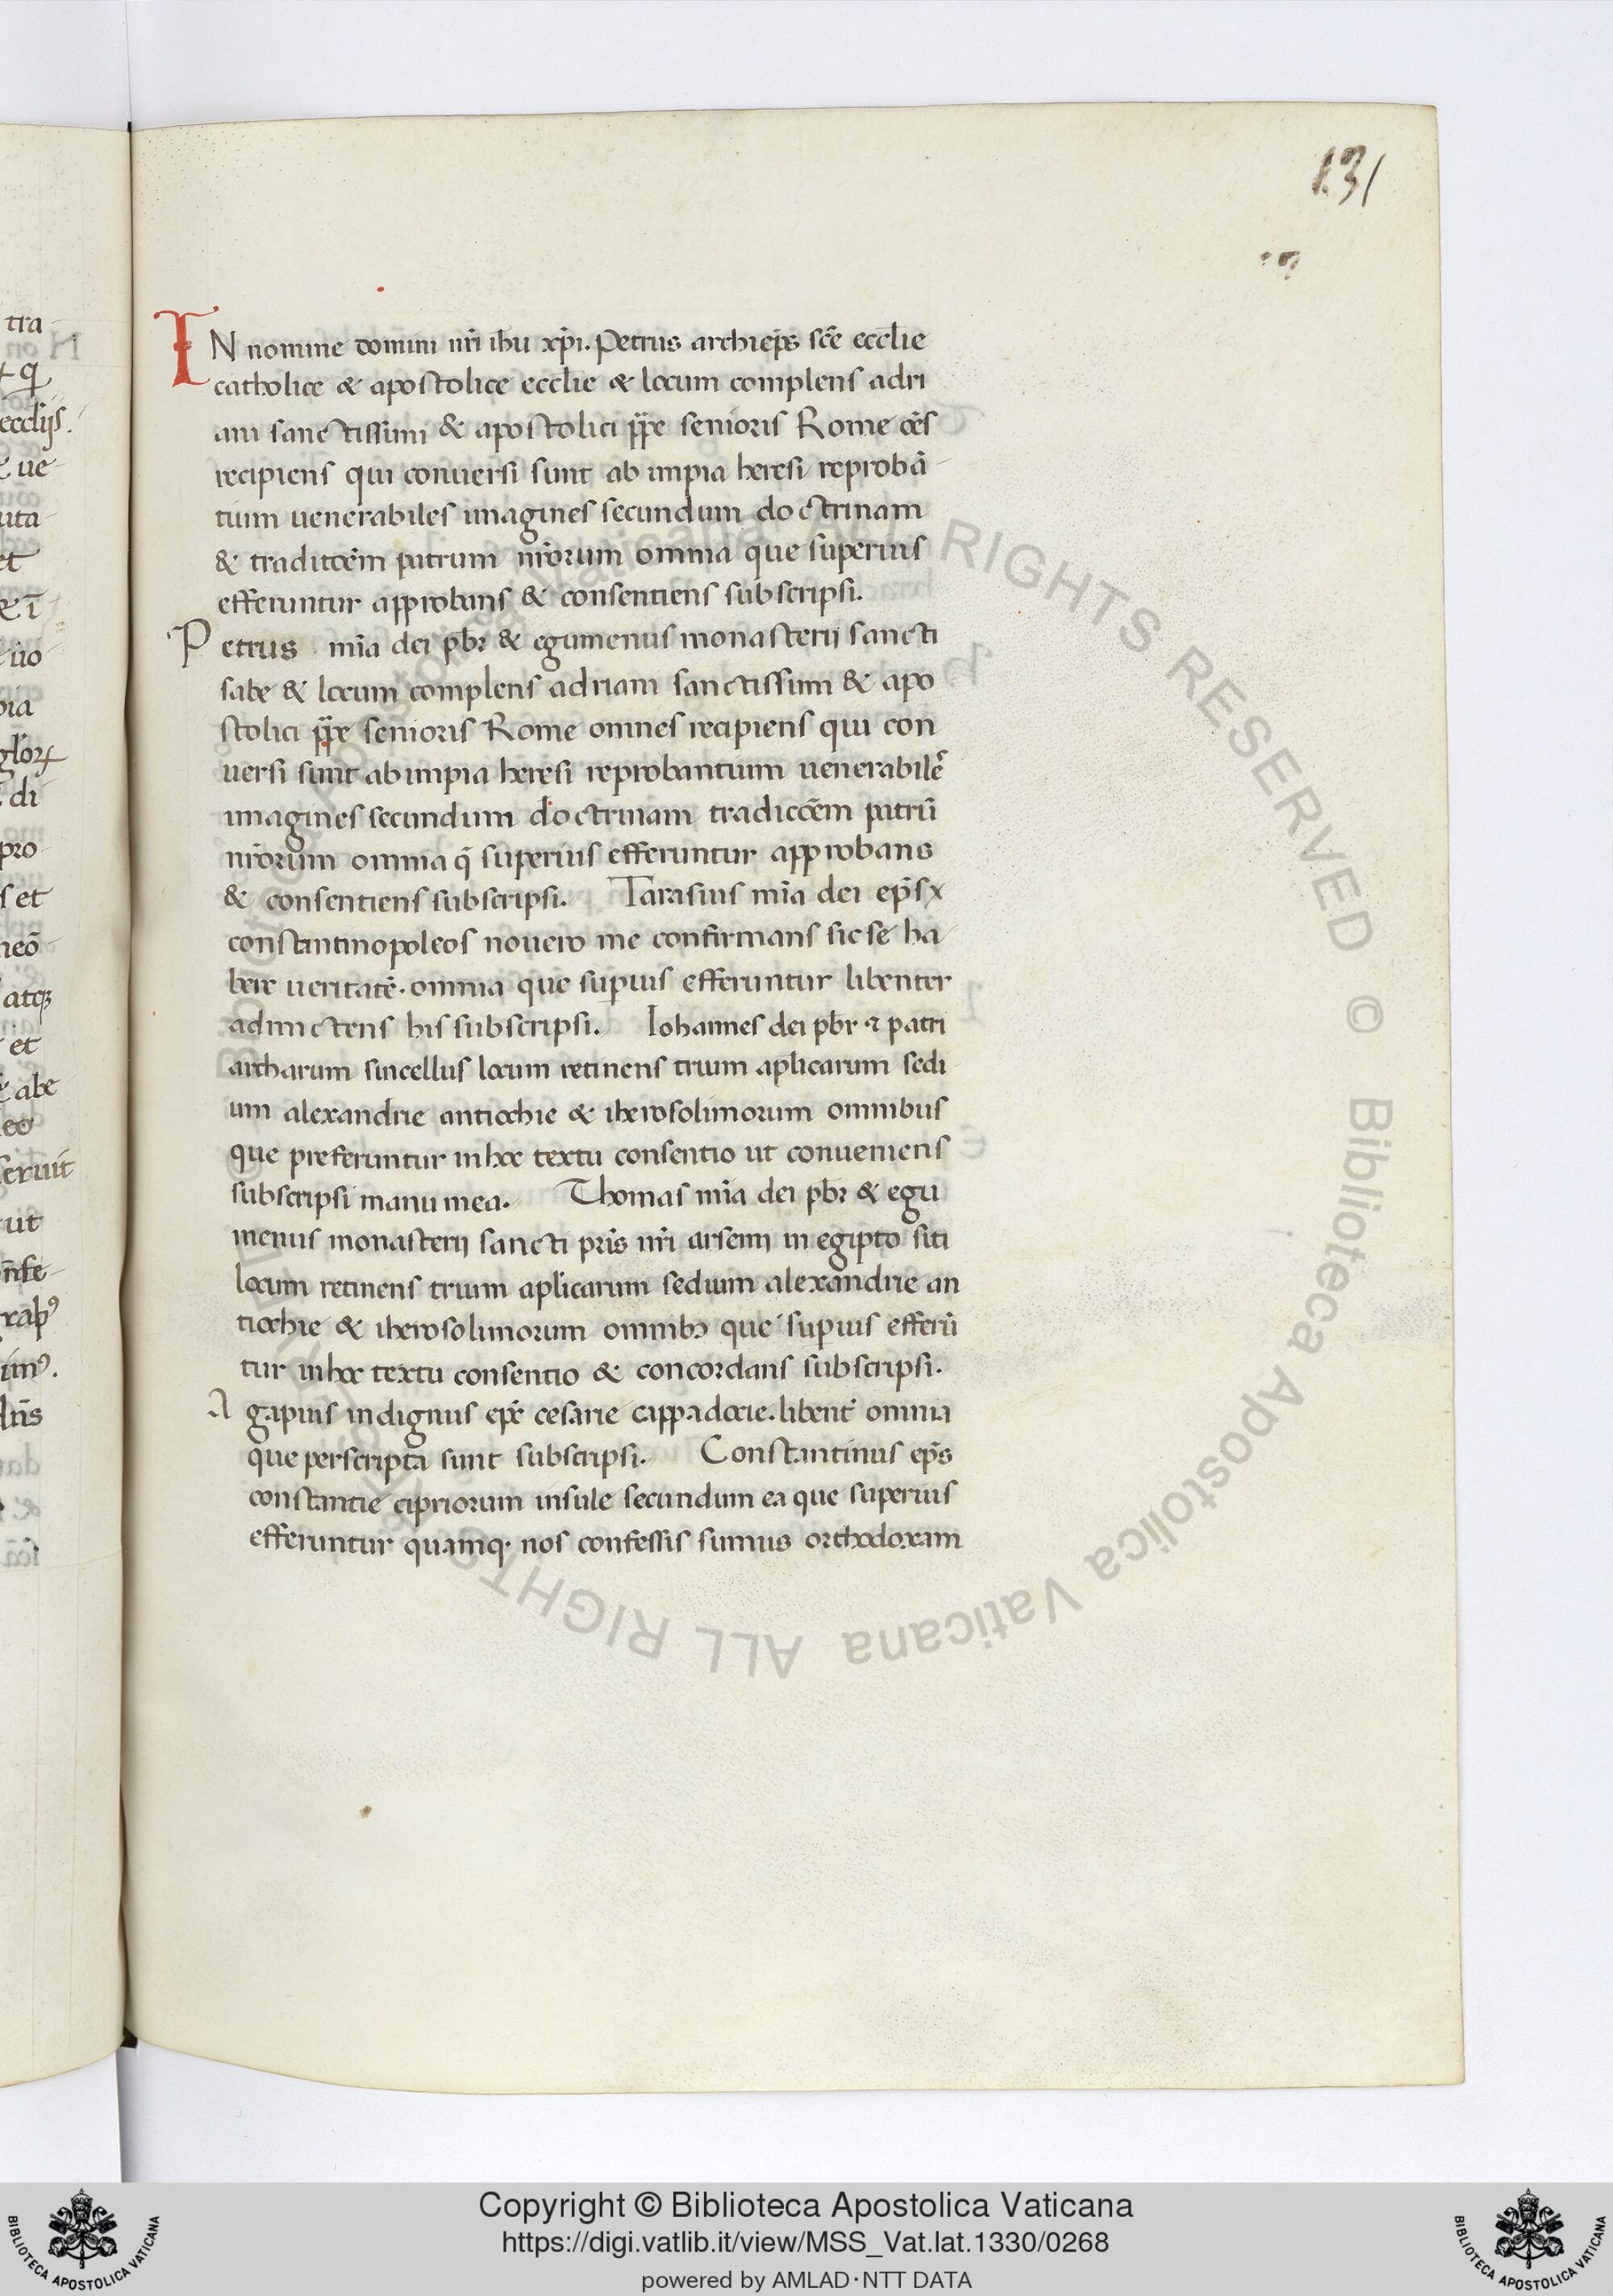 131
IN nomine domini nr̄i ihū xp̄i. Petrus archiep̄s scē eccl̄ie
catholice & apostolice eccl̄ie & locum complens adri
ani sanctissimi & apostolici pp̄e senioris Rome oēs
recipiens qui conuersi sunt ab impia heresi reprobā-
tium uenerabiles imagines secundum doctrinam
& traditōem patrum nr̄orum omnia que superius
efferuntur approbans & consentiens subscripsi.
Petrus mīa dei pb̄r & egumenus monasterij sancti
sabe & locum complens adriani sanctissimi & apo
stolici pp̄e senioris Rome omnes recipiens qui con
uersi sunt ab impia heresi reprobantium uenerabilē
imagines secundum doctrinam tradiccōem patrū
nr̄orum omnia q̄ superius efferuntur approbans
& consentiens subscripsi. Tarasius mīa dei ep̄s
constantinopoleos nouero me confirmans sic se ha
bere ueritatē. omnia que supius efferuntur libenter
admictens his subscripsi. Iohannes dei pb̄r ⁊ patri
archarum sincellus locum retinens trium ap̄licarum sedi
um alexandrie antiochie & iherosolimorum omnibus
que preferuntur in hoc textu consentio ut conueniens
subscripsi manu mea. Thomas mīa dei pb̄r & egu
menus monasterij sancti pr̄is nr̄i arsenij in egipto siti
locum retinens trium aplicarum sedium alexandrie an
tiochie & iherosolimorum omnibꝫ que supius efferū
tur in hoc textu consentio & concordans subscripsi.
Agapius indignus ep̄c cesarie cappadocie. libent̄ omnia
que perscripta sunt subscripsi. Constantinus ep̄s
constantie cipriorum insule secundum ea que superius
efferuntur quamq. nos confessis sumus orthodoxam
tra-
eccl̄ijs.
ue-
uta-
et
uo
glor
di
pro-
s et
neō-
atqꝫ
et
abe
eo
seruit
ut
im⁹.
Biblioteca Apostolica Vaticana ALL RIGHTS RESERVED © Biblioteca Apostolica Vaticana ALL RIGHTS
Copyright © Biblioteca Apostolica Vaticana
https://digi.vatlib.it/view/MSS_Vat.lat.1330/0268
powered by AMLAD·NTT DATA
BIBLIOTECA APOSTOLICA VATICANA
BIBLIOTECA APOSTOLICA VATICANA